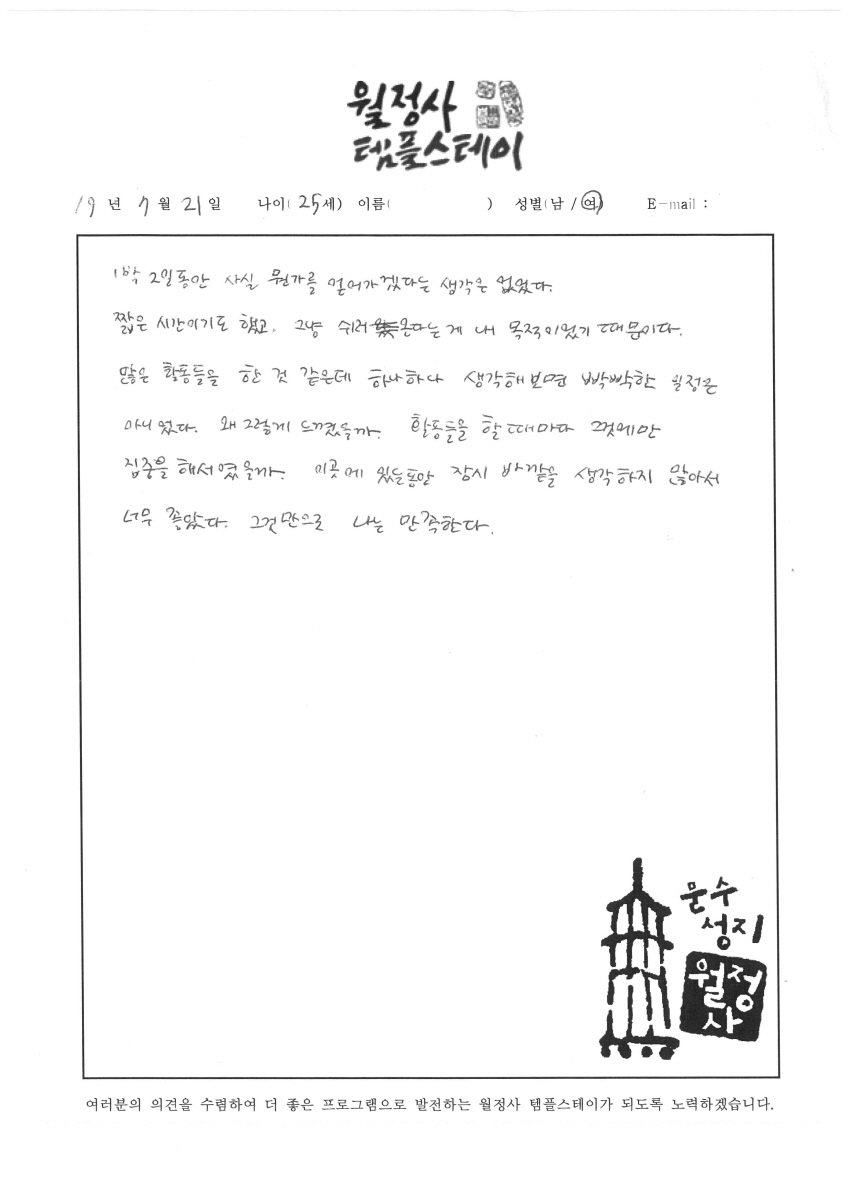 월정사
템플스테이
19 년 7 월 21 일 나이( 25 세) 이름( ) 성별(남 / 여) E-mail :
1박 2일동안 사실 뭔가를 얻어가겠다는 생각은 없었다.
짧은 시간이기도 했고, 그냥 쉬러 온다는게 내 목적이었기 때문이다.
많은 활동들을 한 것 같은데 하나하나 생각해보면 빡빡한 일정은
아니었다. 왜 그렇게 느꼈을까. 활동들을 할 때마다 그것에만
집중을 해서였을까. 이곳에 있는동안 잠시 바깥을 생각하지 않아서
너무 좋았다. 그것만으로 나는 만족한다.
문수
성지
월정
사
여러분의 의견을 수렴하여 더 좋은 프로그램으로 발전하는 월정사 템플스테이가 되도록 노력하겠습니다.